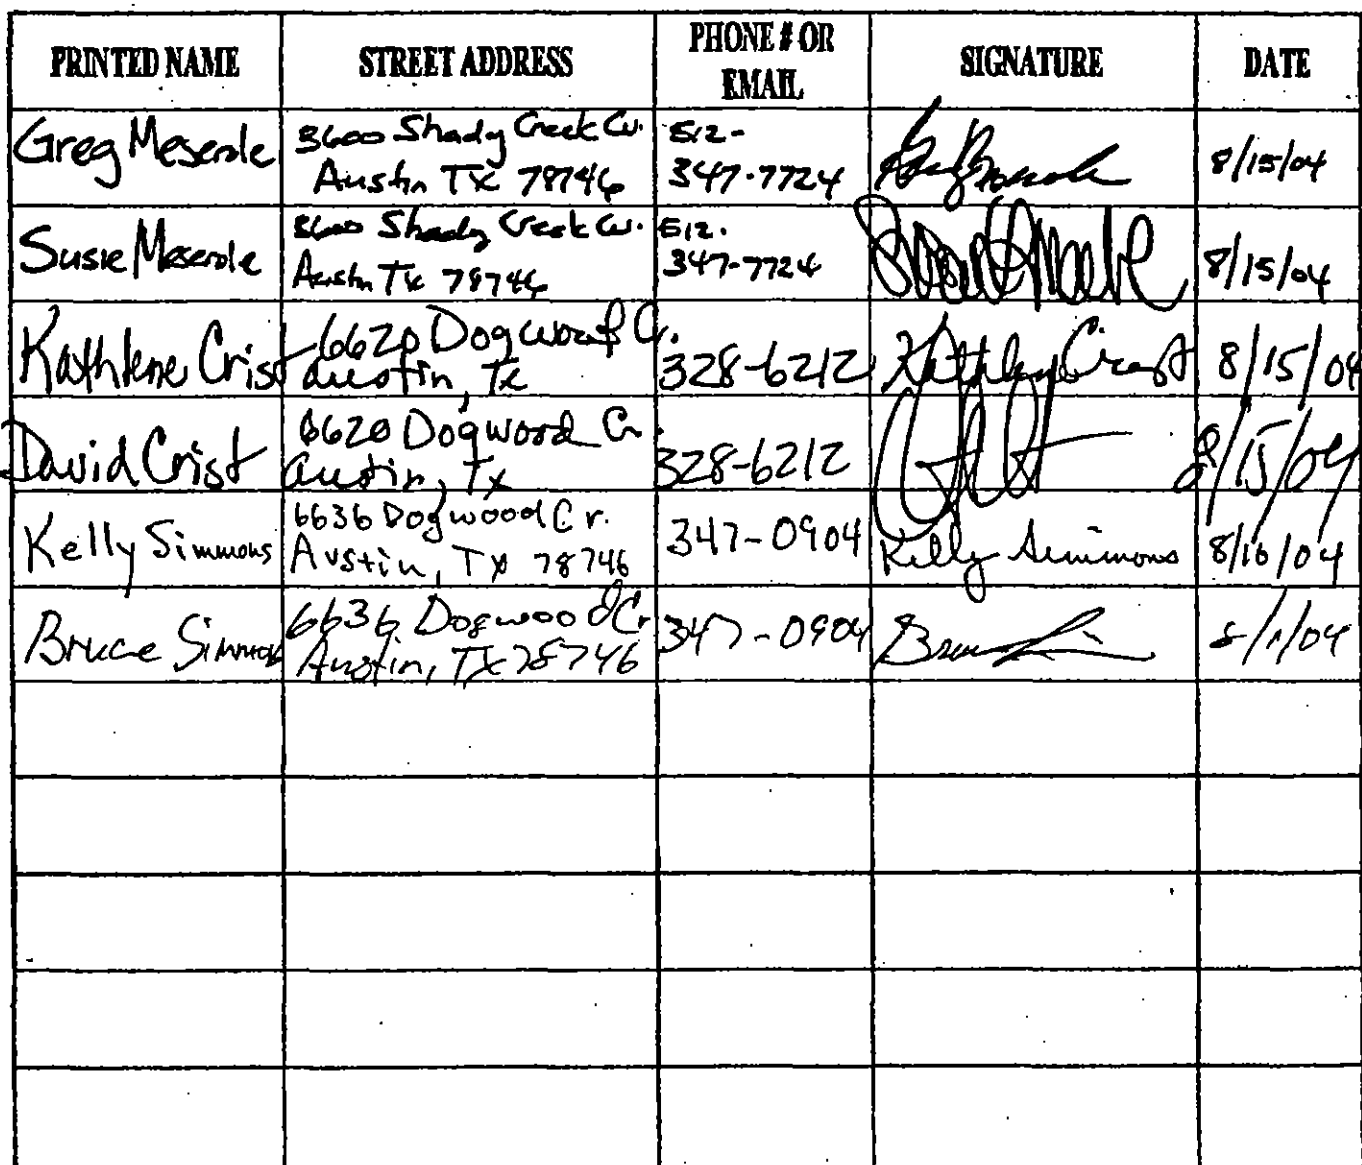 PRINTED NAME STREET ADDRESS PHONE # OR EMAIL SIGNATURE DATE
Greg Meserole 3600 Shady Creek Cv. 512-
Austin TX 78746 347-7724 8/15/04
Susie Meserole 3600 Shady Creek Cv. 512.
Austin Tx 78746 347-7724 8/15/04
Kathlene Crist 6620 Dogwood Cr.
Austin, Tx 328-6212 Kathleen Crist 8/15/04
David Crist 6620 Dogwood Cr.
Austin, Tx 328-6212 8/15/04
Kelly Simmons 6636 Dogwood Cr.
Austin, TX 78746 347-0904 Kelly Simmons 8/16/04
Bruce Simmons 6636 Dogwood Cr
Austin, TX 78746 347-0904 8/1/04